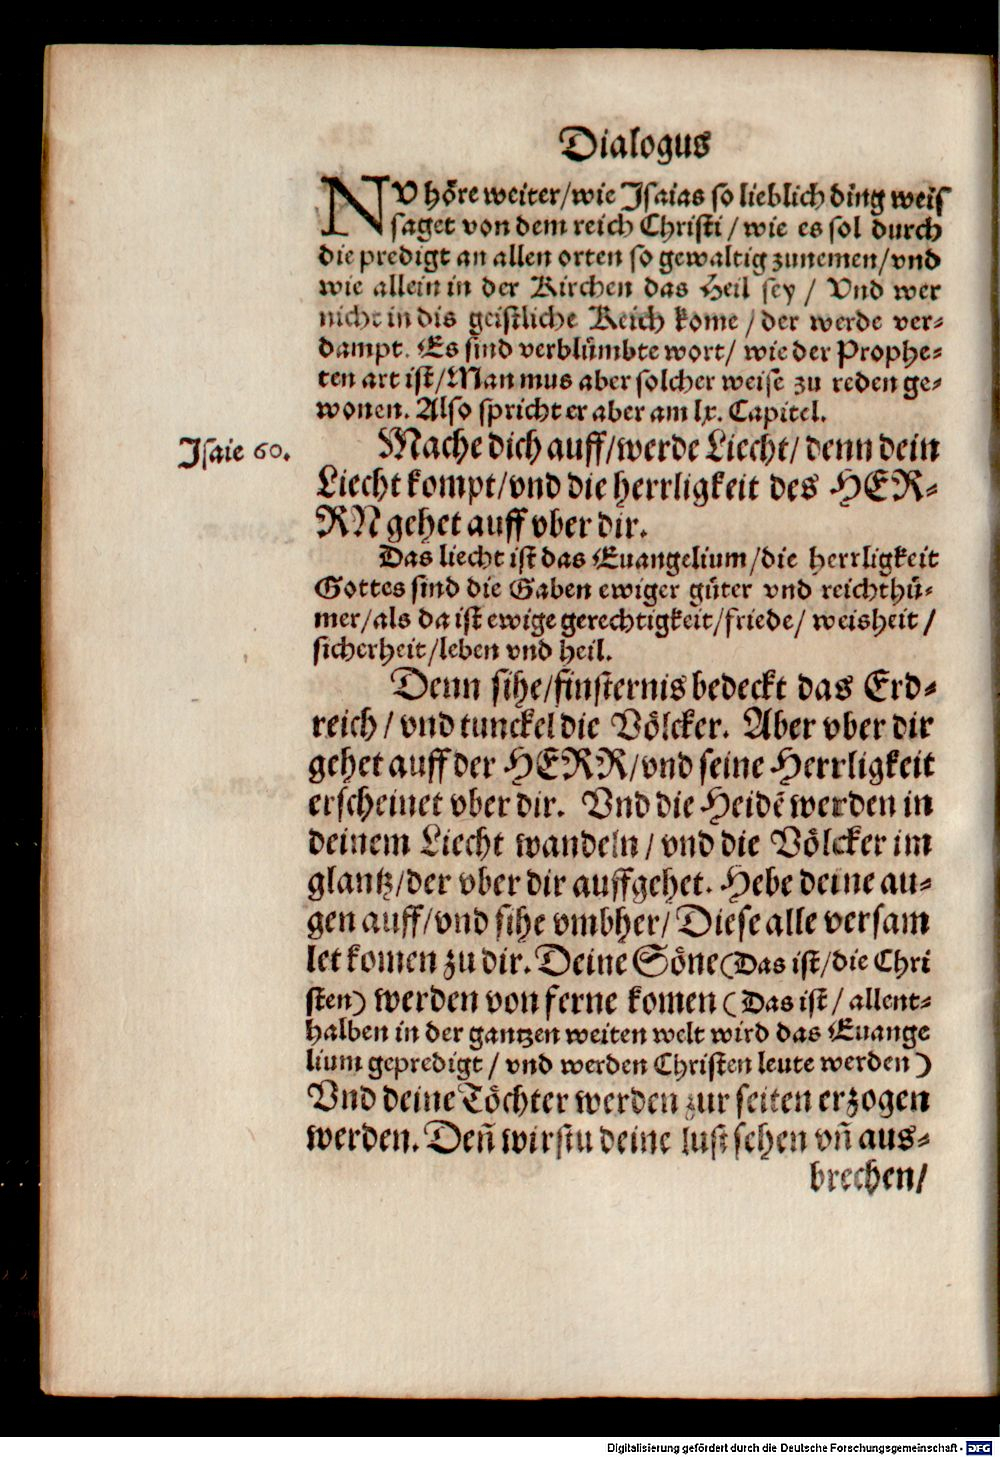 Dialogus
NV höre weiter/wie Isaias so lieblich ding weis
saget von dem reich Christi / wie es sol durch
die predigt an allen orten so gewaltig zunemen/vnd
wie allein in der Kirchen das Heil sey / Vnd wer
nicht in dis geistliche Reich kome / der werde ver-
dampt. Es sind verblümbte wort/ wie der Prophe-
ten art ist/Man mus aber solcher weise zu reden ge-
wonen. Also spricht er aber am lx. Capitel.
Isaie 60.
Mache dich auff/werde Liecht/ denn dein
Liecht kompt/vnd die herrligkeit des HER-
RN gehet auff vber dir.
Das liecht ist das Euangelium/die herrligkeit
Gottes sind die Gaben ewiger güter vnd reichthü-
mer/als da ist ewige gerechtigkeit/friede/ weisheit /
sicherheit/leben vnd heil.
Denn sihe/finsternis bedeckt das Erd-
reich / vnd tunckel die Völcker. Aber vber dir
gehet auff der HERR/vnd seine Herrligkeit
erscheinet vber dir. Vnd die Heidē werden in
deinem Liecht wandeln / vnd die Völcker im
glantz/der vber dir auffgehet. Hebe deine au-
gen auff/vnd sihe vmbher/ Diese alle versam
let komen zu dir. Deine Söne (Das ist/die Chri
sten) werden von ferne komen (Das ist / allent-
halben in der gantzen weiten welt wird das Euange
lium gepredigt / vnd werden Christen leute werden)
Vnd deine Töchter werden zur seiten erzogen
werden. Deñ wirstu deine lust sehen vñ aus-
brechen/
Digitalisierung gefördert durch die Deutsche Forschungsgemeinschaft - DFG